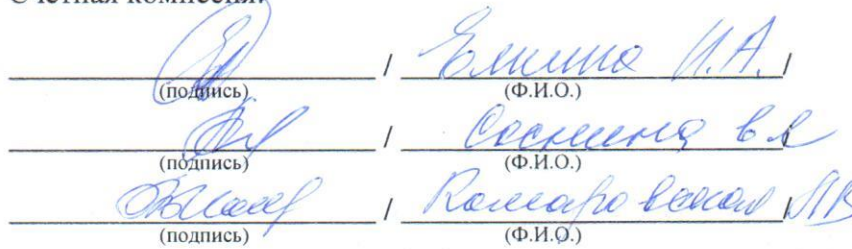 Счетная комиссия:
/ Елкина И.А. /
(подпись) (Ф.И.О.)
/ Соснина В Я
(подпись) (Ф.И.О.)
/ Комаровская ЛВ
(подпись) (Ф.И.О.)